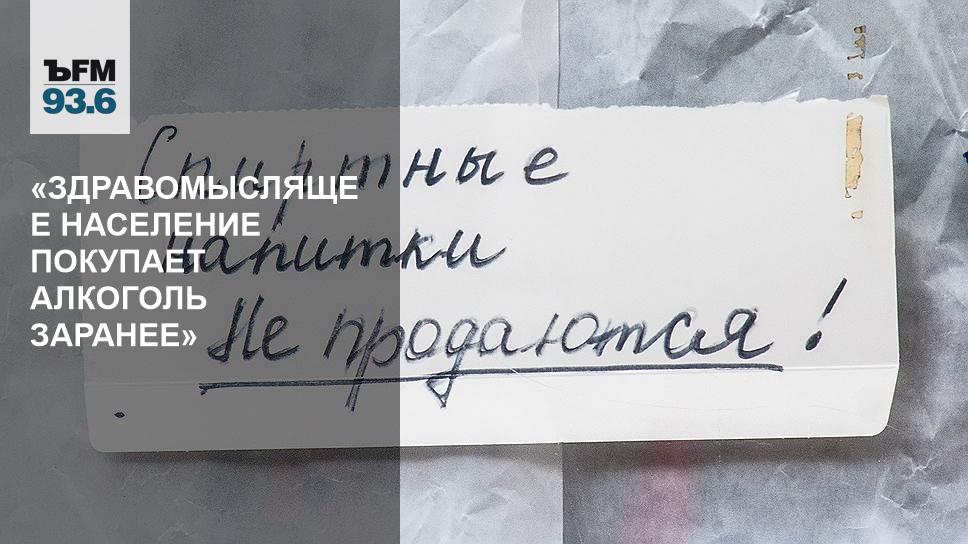 ЪFM
93.6
«ЗДРАВОМЫСЛЯЩЕ
Е НАСЕЛЕНИЕ
ПОКУПАЕТ
АЛКОГОЛЬ
ЗАРАНЕЕ»
Спиртные
напитки
Не продаются!